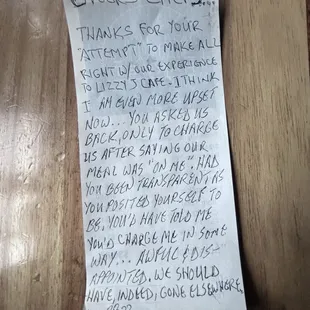 THANKS FOR YOUR
"ATTEMPT" TO MAKE ALL
RIGHT W/ OUR EXPERIENCE
TO LIZZY J CAFE. I THINK
I AM EVEN MORE UPSET
NOW... YOU ASKED US
BACK, ONLY TO CHARGE
US AFTER SAYING OUR
MEAL WAS "ON ME". HAD
YOU BEEN TRANSPARENT AS
YOU POSITED YOURSELF TO
BE, YOU'D HAVE TOLD ME
YOU'D CHARGE ME IN SOME
WAY... AWFUL & DIS-
APPOINTED. WE SHOULD
HAVE, INDEED, GONE ELSEWHERE.